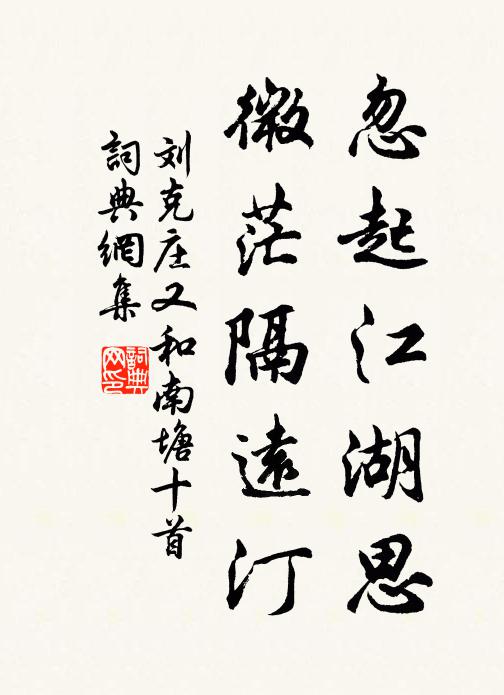 忽起江湖思
微茫隔遠汀
刘克庄又和南塘十首
詞典網集
詞典网印